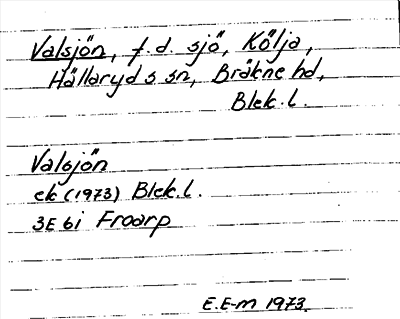 Valsjön, f.d. sjö, Kölja,
Hällaryd s sn, Bräkne hd,
Blek. l.
Valsjön
ek (1973) Blek. l.
3E 6i Froarp
E.E-m 1973.